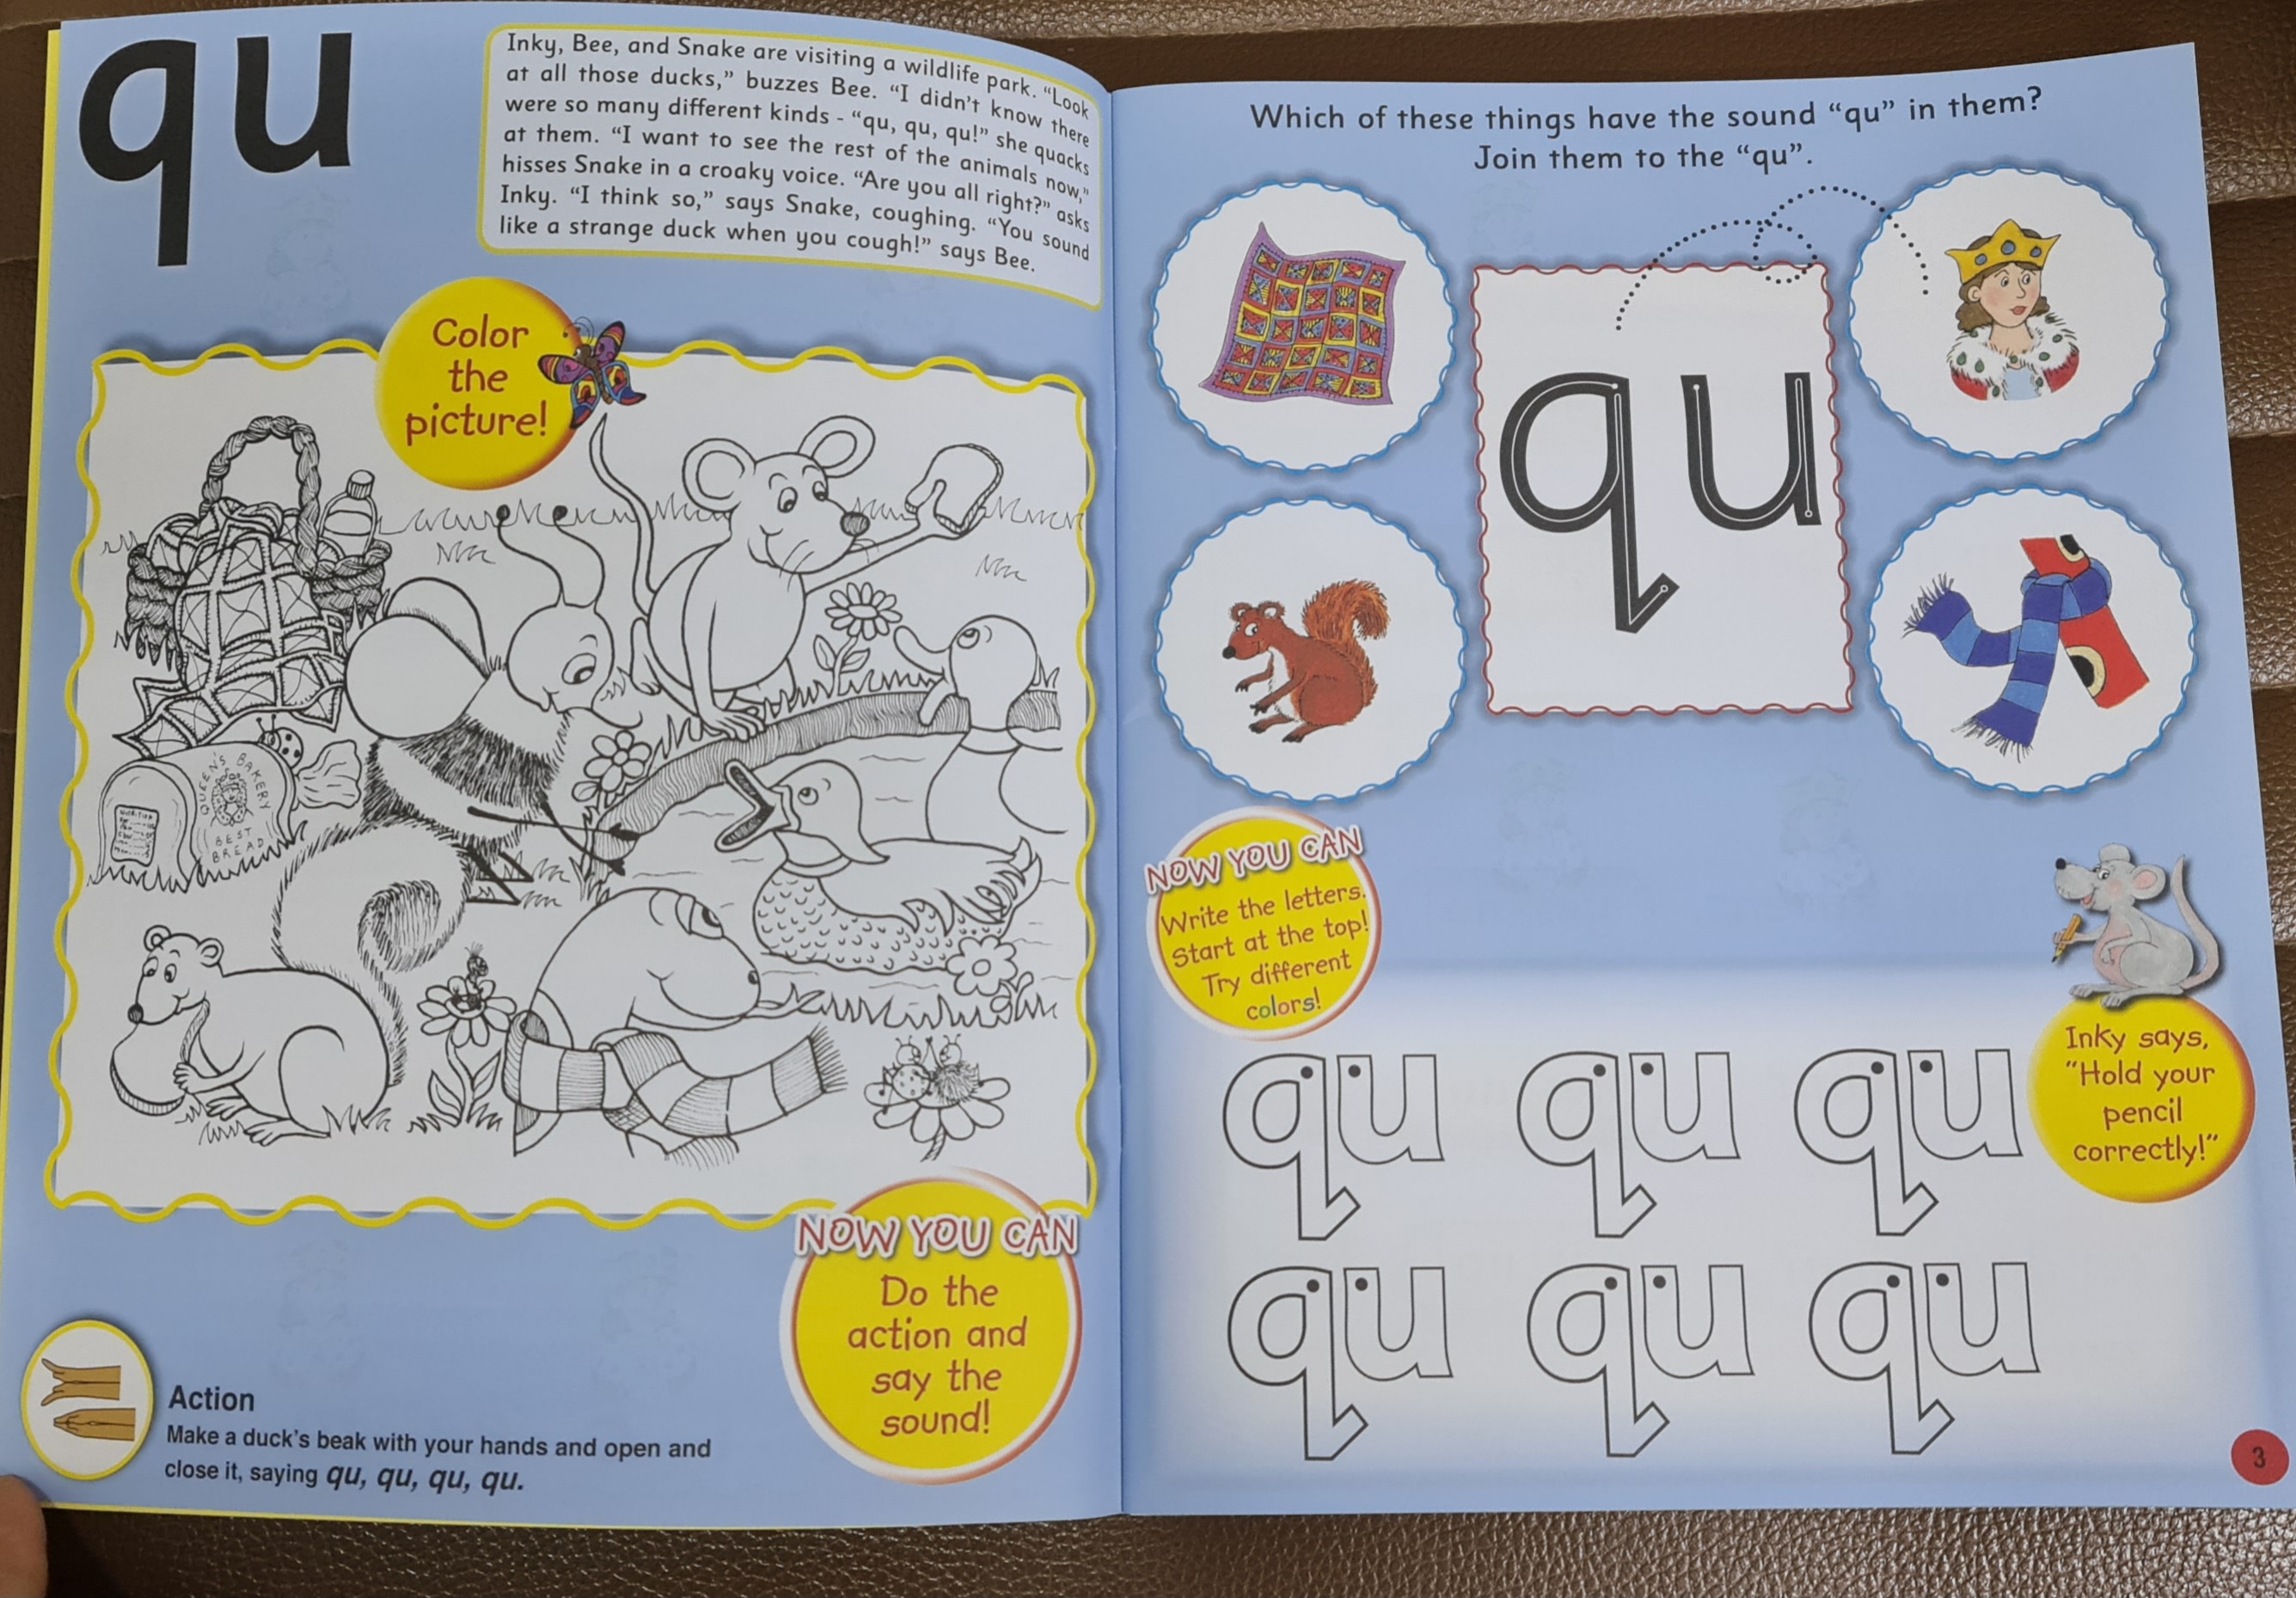 qu
Inky, Bee, and Snake are visiting a wildlife park. “Look
at all those ducks,” buzzes Bee. “I didn’t know there
were so many different kinds - “qu, qu, qu!” she quacks
at them. “I want to see the rest of the animals now,”
hisses Snake in a croaky voice. “Are you all right?” asks
Inky. “I think so,” says Snake, coughing. “You sound
like a strange duck when you cough!” says Bee.
Color
the
picture!
QUEEN'S BAKERY
BEST
BREAD
NOW YOU CAN
Do the
action and
say the
sound!
Action
Make a duck’s beak with your hands and open and
close it, saying qu, qu, qu, qu.
Which of these things have the sound “qu” in them?
Join them to the “qu”.
qu
NOW YOU CAN
Write the letters.
Start at the top!
Try different
colors!
Inky says,
“Hold your
pencil
correctly!”
qu qu qu
qu qu qu
3